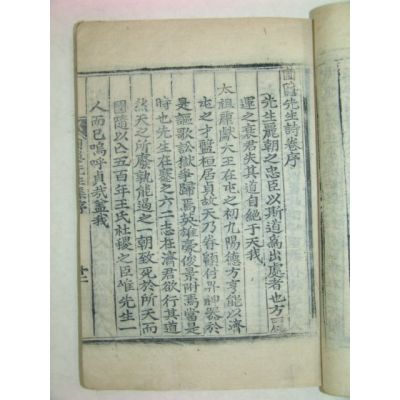 圃隱先生詩卷序
先生麗朝之忠臣以斯道爲出處者也方
運之衰君失其道自絕于天我
太祖康獻大王在屯之初九賜德方亨能以濟
屯之才盤桓居貞故天乃眷顧付畀神器於
是謳歌訟獄爭歸焉英雄豪俊景附焉當是
時也先生在蹇之六二志在濟君欲行其道
然天之所廢孰能過之一朝致死於所天而
國隨以亾五百年王氏社稷之臣唯先生一
人而已嗚呼貞哉蓋我